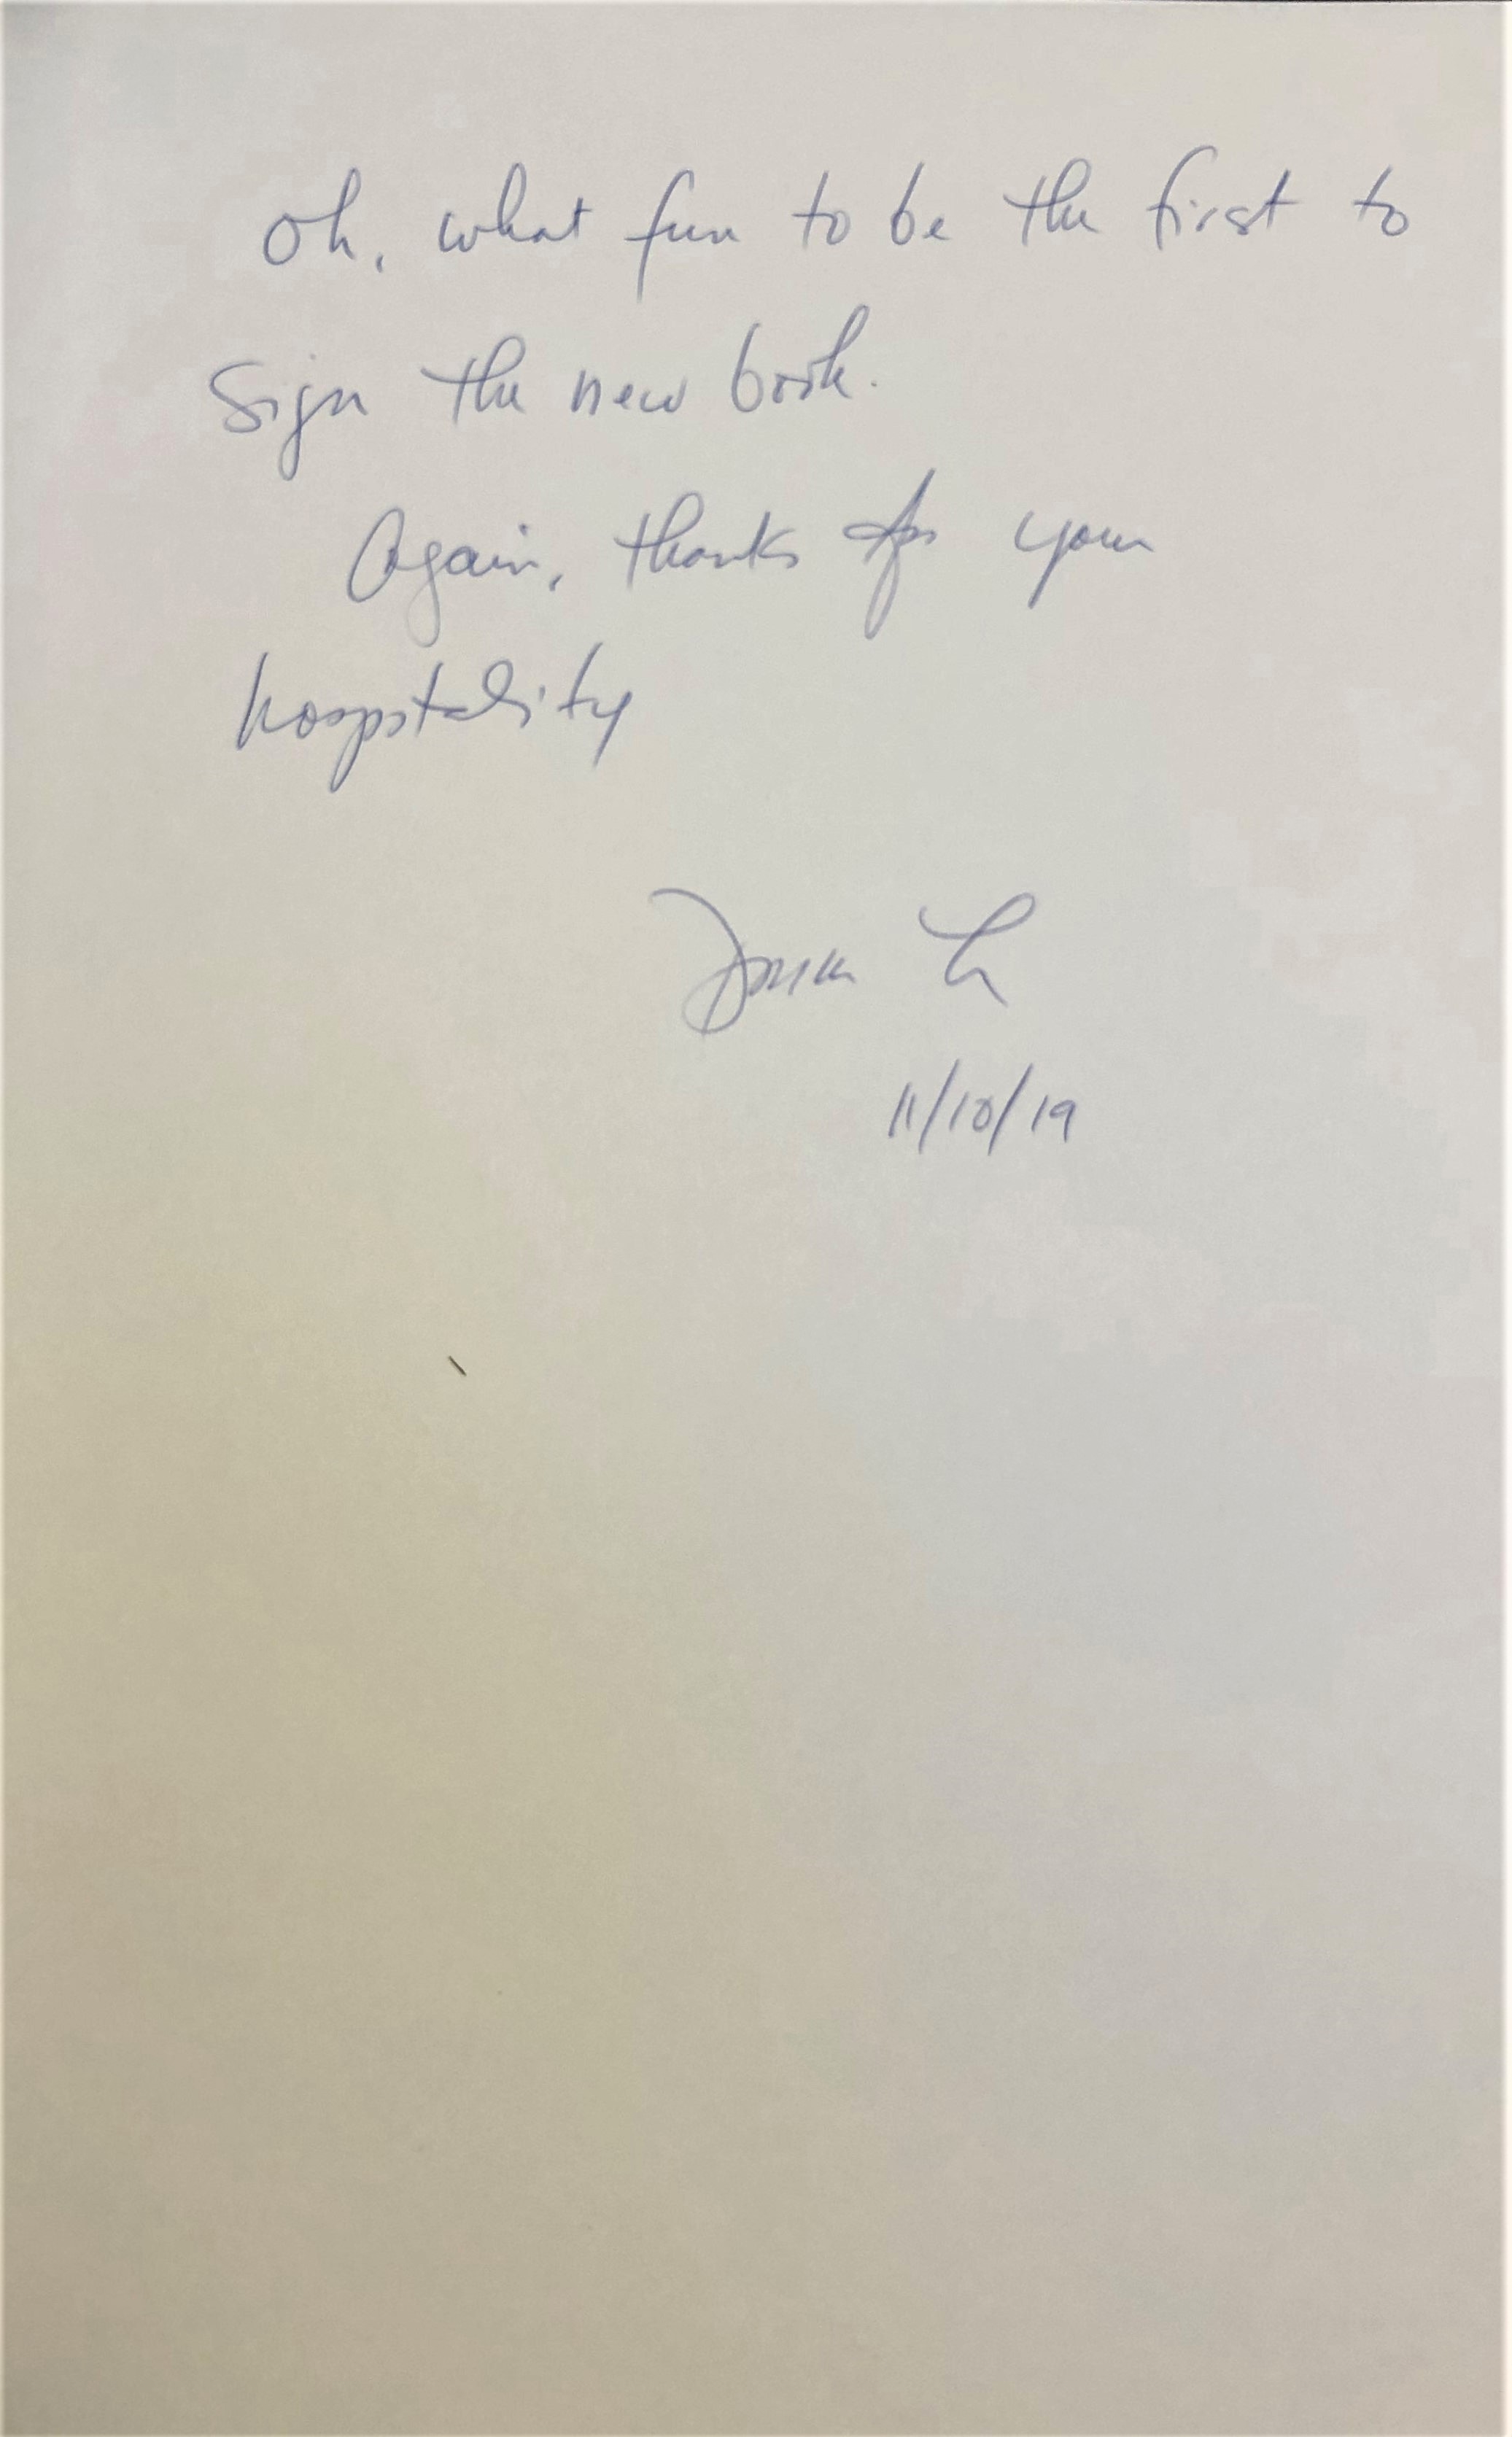 Oh, what fun to be the first to
sign the new book.
Again, thanks for your
hospitality
11/10/19